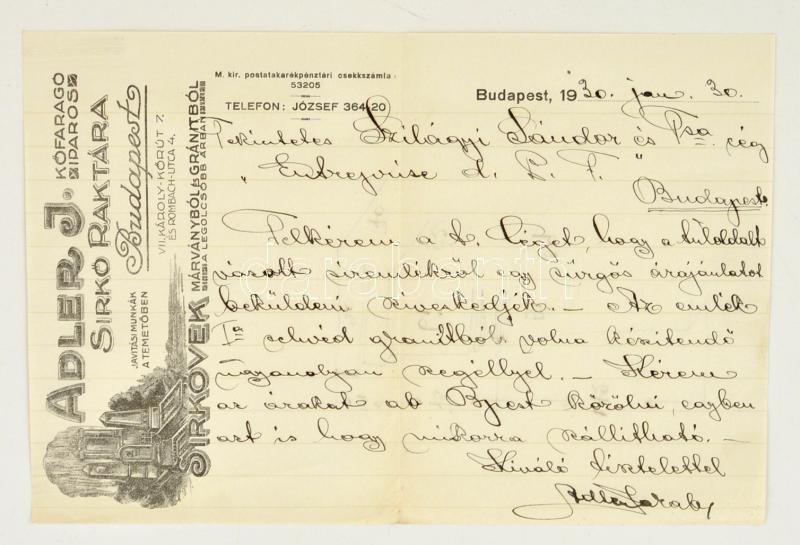 ADLER J. KŐFARAGÓ IPAROS
SÍRKŐ RAKTÁRA
Budapest
VII. KÁROLY-KÖRÚT 7.
ÉS ROMBACH-UTCA 4.
JAVÍTÁSI MUNKÁK
A TEMETŐBEN
SÍRKÖVEK MÁRVÁNYBÓL ÉS GRÁNITBÓL
A LEGOLCSÓBB ÁRBAN
M. kir. postatakarékpénztári csekkszámla:
53205
TELEFON: JÓZSEF 364-20
Budapest, 1930. jan. 30.
Tekintetes Szilágyi Sándor és Tsa cég
„Entreprise d. P. F."
Budapest.
Felkérem a t. Céget, hogy a túloldalt
vázolt síremlékről egy sürgős árajánlatot
beküldeni sziveskedjék. – Az emlék
Ia svéd gránitból volna készítendő
ugyanolyan szegéllyel. – Kérem
az árakat ab Bpest közölni, egyben
azt is hogy mikorra szállítható. –
Kiváló tisztelettel
Adler Jarab
darabanth